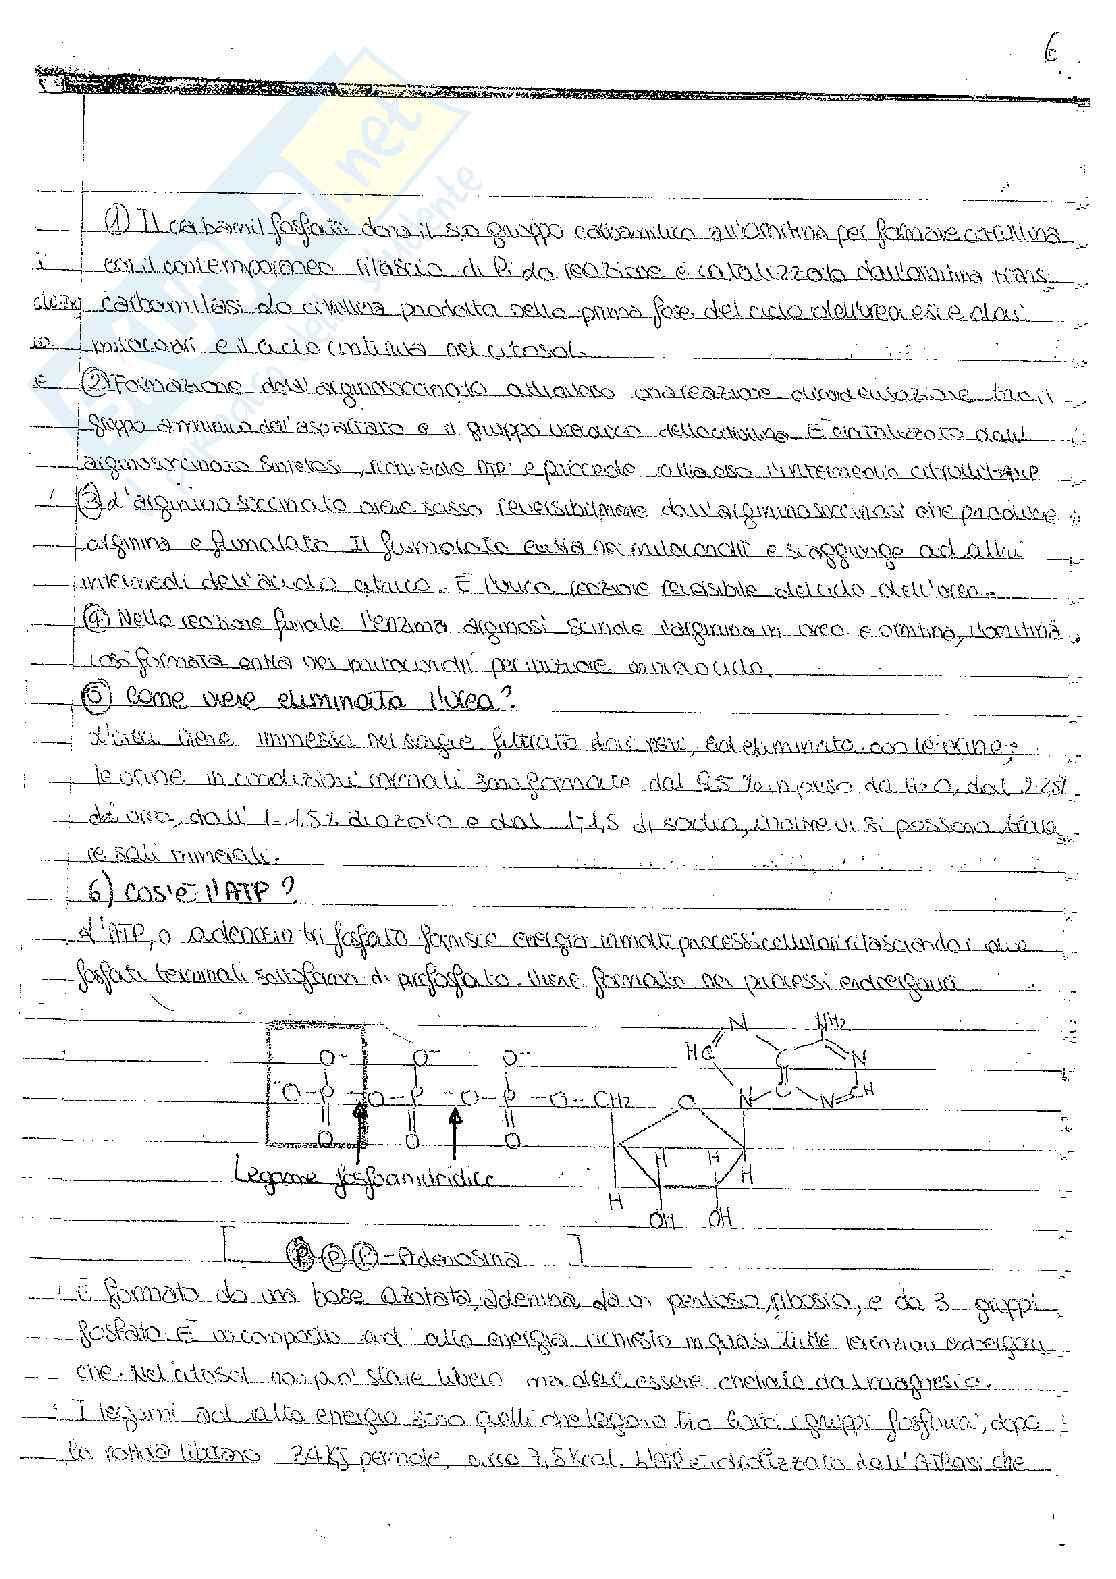 6
① Il carbamil fosfato dona il suo gruppo carbamilico all'ornitina per formare citrullina
con il contemporaneo rilascio di Pi la reazione è catalizzata dall'ornitina trans
carbamilasi la citrullina prodotta nella prima fase del ciclo dell'urea esce dai
mitocondri e il ciclo continua nel citosol.
② Formazione dell'arginosuccinato attraverso una reazione di condensazione tra il
gruppo amminico dell'aspartato e il gruppo ureidico della citrullina. È catalizzato dall'
arginosuccinato sintetasi, richiede ATP e procede attraverso l'intermedio citrullil-AMP
③ L'argininosuccinato viene scisso reversibilmente dall'argininosuccinasi che produce
arginina e fumarato Il fumarato entra nei mitocondri e si aggiunge ad altri
intermedi dell'acido citrico. È l'unica reazione reversibile del ciclo dell'urea.
④ Nella reazione finale l'enzima arginasi scinde l'arginina in urea e ornitina, l'ornitina
così formata entra nei mitocondri per iniziare un nuovo ciclo.
⑤ Come viene eliminata l'urea?
L'urea viene immessa nel sangue filtrata dai reni, ed eliminata con le urine;
le urine in condizioni normali sono formate dal 95% in peso da H2O, dal 2
di urea, dall' 1-1,5% di azoto e dal 1-1,5 di sodio, inoltre vi si possono trova
re sali minerali.
6) Cos'è l'ATP?
L'ATP, o adenosin tri fosfato fornisce energia in molti processi cellulari rilasciando i due
fosfati terminali sottoforma di pirofosfato. Viene formato nei processi endoergonici
N NH2
HC C N
O- O- O- C
-O-P-O-P-O-P-O-CH2 O N N CH
O O O
H H H
Legame fosfoanidridico
H
OH OH
[ P P P - Adenosina ]
È formato da una base azotata, adenina da un pentoso, ribosio, e da 3 gruppi
fosfato. È un composto ad alta energia richiesto in quasi tutte reazioni endoergoni
che. Nel citosol non può stare libero ma deve essere chelato dal magnesio.
I legami ad alta energia sono quelli che legano tra loro i gruppi fosforici, dopo
la rottura liberano 34KJ per mole, circa 7,3 Kcal. L'ATP è idrolizzato dall'ATPasi che